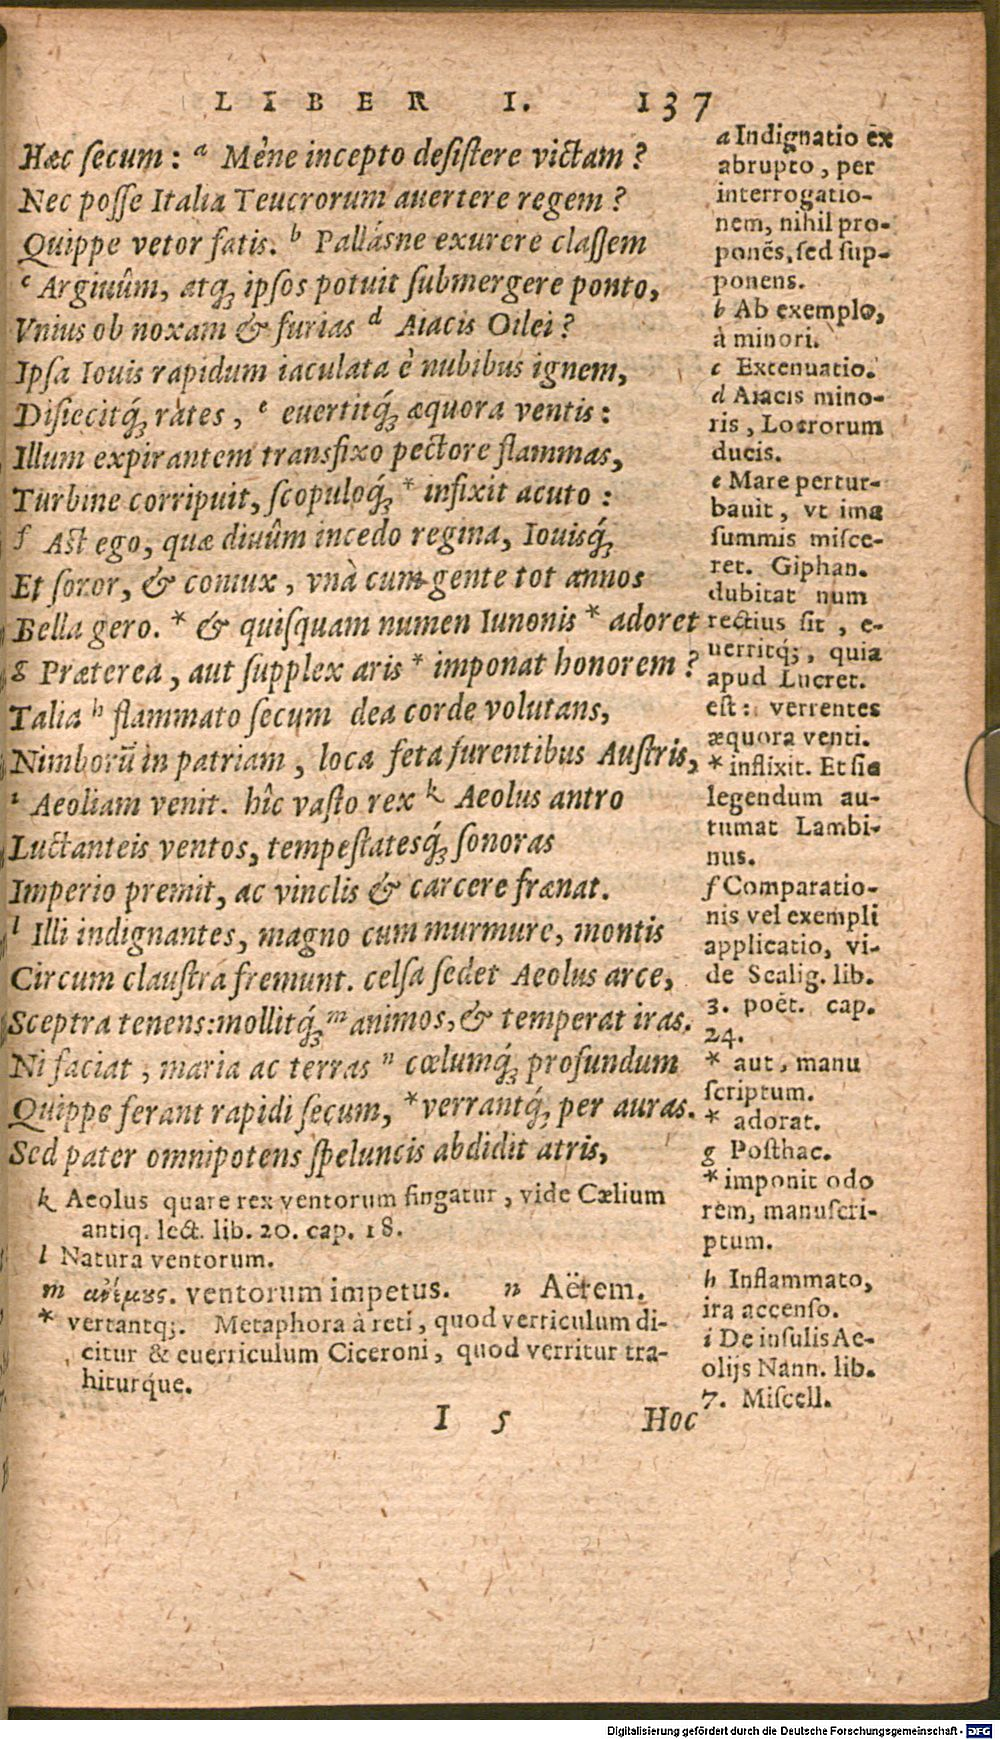 LIBER I. 137
Hæc secum: a Mène incepto desistere victam?
Nec posse Italia Teucrorum auertere regem?
Quippe vetor fatis. b Pallásne exurere classem
c Argiuûm, atq́; ipsos potuit submergere ponto,
Vnius ob noxam & furias d Aiacis Oilei?
Ipsa Iouis rapidum iaculata è nubibus ignem,
Disiecitq́; rates, e euertitq́; æquora ventis:
Illum expirantem transfixo pectore flammas,
Turbine corripuit, scopuloq́; * infixit acuto:
f Ast ego, quæ diuûm incedo regina, Iouisq́;
Et soror, & coniux, vnà cum gente tot annos
Bella gero. * & quisquam numen Iunonis * adoret
g Præterea, aut supplex aris * imponat honorem?
Talia h flammato secum dea corde volutans,
Nimborū in patriam, loca feta furentibus Austris,
i Aeoliam venit. hîc vasto rex k Aeolus antro
Luctanteis ventos, tempestatesq́; sonoras
Imperio premit, ac vinclis & carcere frænat.
l Illi indignantes, magno cum murmure, montis
Circum claustra fremunt. celsa sedet Aeolus arce,
Sceptra tenens: mollitq́; m animos, & temperat iras.
Ni faciat, maria ac terras n cœlumq́; profundum
Quippe ferant rapidi secum, * verrantq́; per auras.
Sed pater omnipotens speluncis abdidit atris,
k Aeolus quare rex ventorum fingatur, vide Cælium
antiq. lect. lib. 20. cap. 18.
l Natura ventorum.
m ἀνέμους. ventorum impetus. n Aërem.
* vertantq;. Metaphora à reti, quod verriculum di-
citur & euerriculum Ciceroni, quod verritur tra-
hiturque.
I 5 Hoc
a Indignatio ex
abrupto, per
interrogatio-
nem, nihil pro-
ponēs, sed sup-
ponens.
b Ab exemplo,
à minori.
c Extenuatio.
d Aiacis mino-
ris, Locrorum
ducis.
e Mare pertur-
bauit, vt ima
summis misce-
ret. Giphan.
dubitat num
rectius sit, e-
uerritq;, quia
apud Lucret.
est: verrentes
æquora venti.
* inflixit. Et sic
legendum au-
tumat Lambi-
nus.
f Comparatio-
nis vel exempli
applicatio, vi-
de Scalig. lib.
3. poët. cap.
24.
* aut, manu
scriptum.
* adorat.
g Posthac.
* imponit odo
rem, manuscri-
ptum.
h Inflammato,
ira accenso.
i De insulis Ae-
olijs Nann. lib.
7. Miscell.
Digitalisierung gefördert durch die Deutsche Forschungsgemeinschaft - DFG